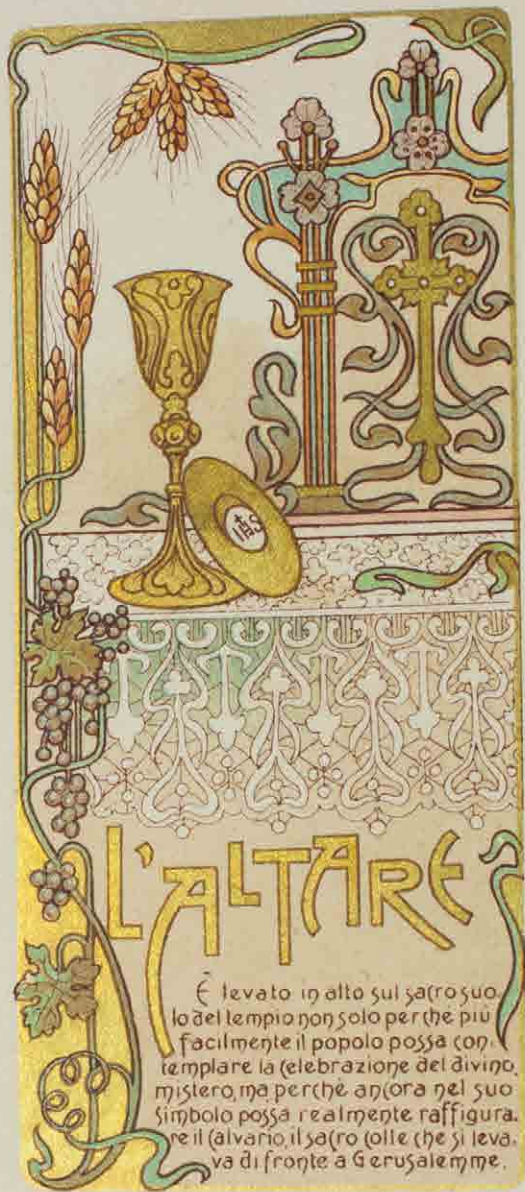 IHS
L'ALTARE
È levato in alto sul sacro suo.
lo del tempio non solo perchè più
facilmente il popolo possa con.
templare la celebrazione del divino
mistero, ma perchè ancora nel suo
simbolo possa realmente raffigura.
re il Calvario, il sacro colle che si leva.
va di fronte a Gerusalemme.